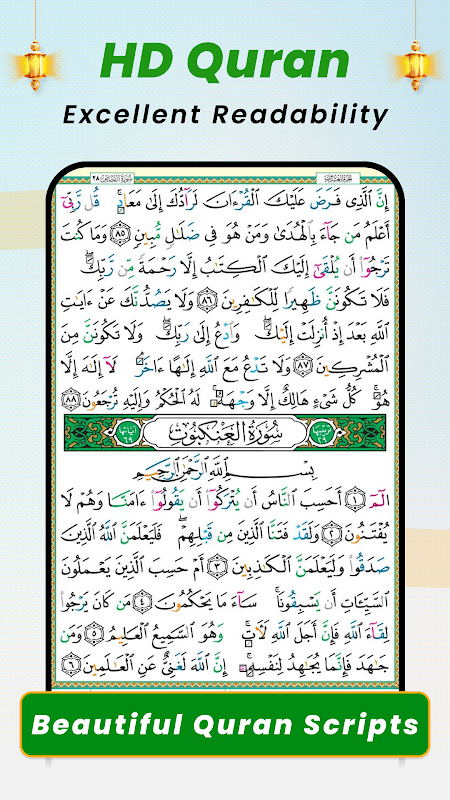 HD Quran
Excellent Readability
إِنَّ الَّذِى فَرَضَ عَلَيْكَ الْقُرْءَانَ لَرَآدُّكَ إِلَىٰ مَعَادٍ ۚ قُل رَّبِّىٓ
أَعْلَمُ مَن جَآءَ بِالْهُدَىٰ وَمَنْ هُوَ فِى ضَلَـٰلٍ مُّبِينٍ ٨٥ وَمَا كُنتَ
تَرْجُوٓا۟ أَن يُلْقَىٰٓ إِلَيْكَ الْكِتَـٰبُ إِلَّا رَحْمَةً مِّن رَّبِّكَ ۖ
فَلَا تَكُونَنَّ ظَهِيرًا لِّلْكَـٰفِرِينَ ٨٦ وَلَا يَصُدُّنَّكَ عَنْ ءَايَـٰتِ
اللَّهِ بَعْدَ إِذْ أُنزِلَتْ إِلَيْكَ ۖ وَادْعُ إِلَىٰ رَبِّكَ ۖ وَلَا تَكُونَنَّ مِنَ
الْمُشْرِكِينَ ٨٧ وَلَا تَدْعُ مَعَ اللَّهِ إِلَـٰهًا ءَاخَرَ ۘ لَآ إِلَـٰهَ إِلَّا
هُوَ ۚ كُلُّ شَىْءٍ هَالِكٌ إِلَّا وَجْهَهُۥ ۚ لَهُ الْحُكْمُ وَإِلَيْهِ تُرْجَعُونَ ٨٨
سُورَةُ الْعَنكَبُوتِ
بِسْمِ اللَّهِ الرَّحْمَـٰنِ الرَّحِيمِ
الٓمٓ ١ أَحَسِبَ النَّاسُ أَن يُتْرَكُوٓا۟ أَن يَقُولُوٓا۟ ءَامَنَّا وَهُمْ لَا
يُفْتَنُونَ ٢ وَلَقَدْ فَتَنَّا الَّذِينَ مِن قَبْلِهِمْ ۖ فَلَيَعْلَمَنَّ اللَّهُ الَّذِينَ
صَدَقُوا۟ وَلَيَعْلَمَنَّ الْكَـٰذِبِينَ ٣ أَمْ حَسِبَ الَّذِينَ يَعْمَلُونَ
السَّيِّـَٔاتِ أَن يَسْبِقُونَا ۚ سَآءَ مَا يَحْكُمُونَ ٤ مَن كَانَ يَرْجُوا۟
لِقَآءَ اللَّهِ فَإِنَّ أَجَلَ اللَّهِ لَـَٔاتٍ ۚ وَهُوَ السَّمِيعُ الْعَلِيمُ ٥ وَمَن
جَـٰهَدَ فَإِنَّمَا يُجَـٰهِدُ لِنَفْسِهِۦٓ ۚ إِنَّ اللَّهَ لَغَنِىٌّ عَنِ الْعَـٰلَمِينَ ٦
Beautiful Quran Scripts